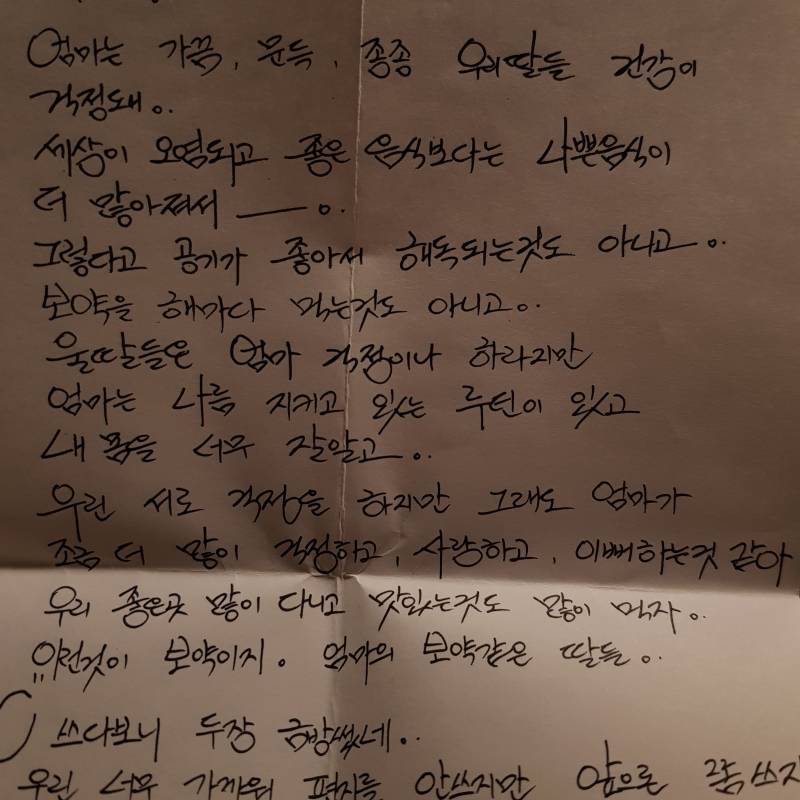 엄마는 가끔, 문득, 종종 우리딸들 건강이
걱정돼..
세상이 오염되고 좋은 음식보다는 나쁜음식이
더 많아져서 —.
그렇다고 공기가 좋아서 해독되는것도 아니고..
보약을 해마다 먹는것도 아니고..
울딸들은 엄마 걱정이나 하라지만
엄마는 나름 지키고 있는 루틴이 있고
내 몸을 너무 잘알고..
우린 서로 걱정을 하지만 그래도 엄마가
조금 더 많이 걱정하고, 사랑하고, 이뻐하는것 같아
우리 좋은곳 많이 다니고 맛있는것도 많이 먹자..
이런것이 보약이지. 엄마의 보약같은 딸들..
쓰다보니 두장 금방썼네..
우린 너무 가까워 편지를 안쓰지만 앞으론 쓰자